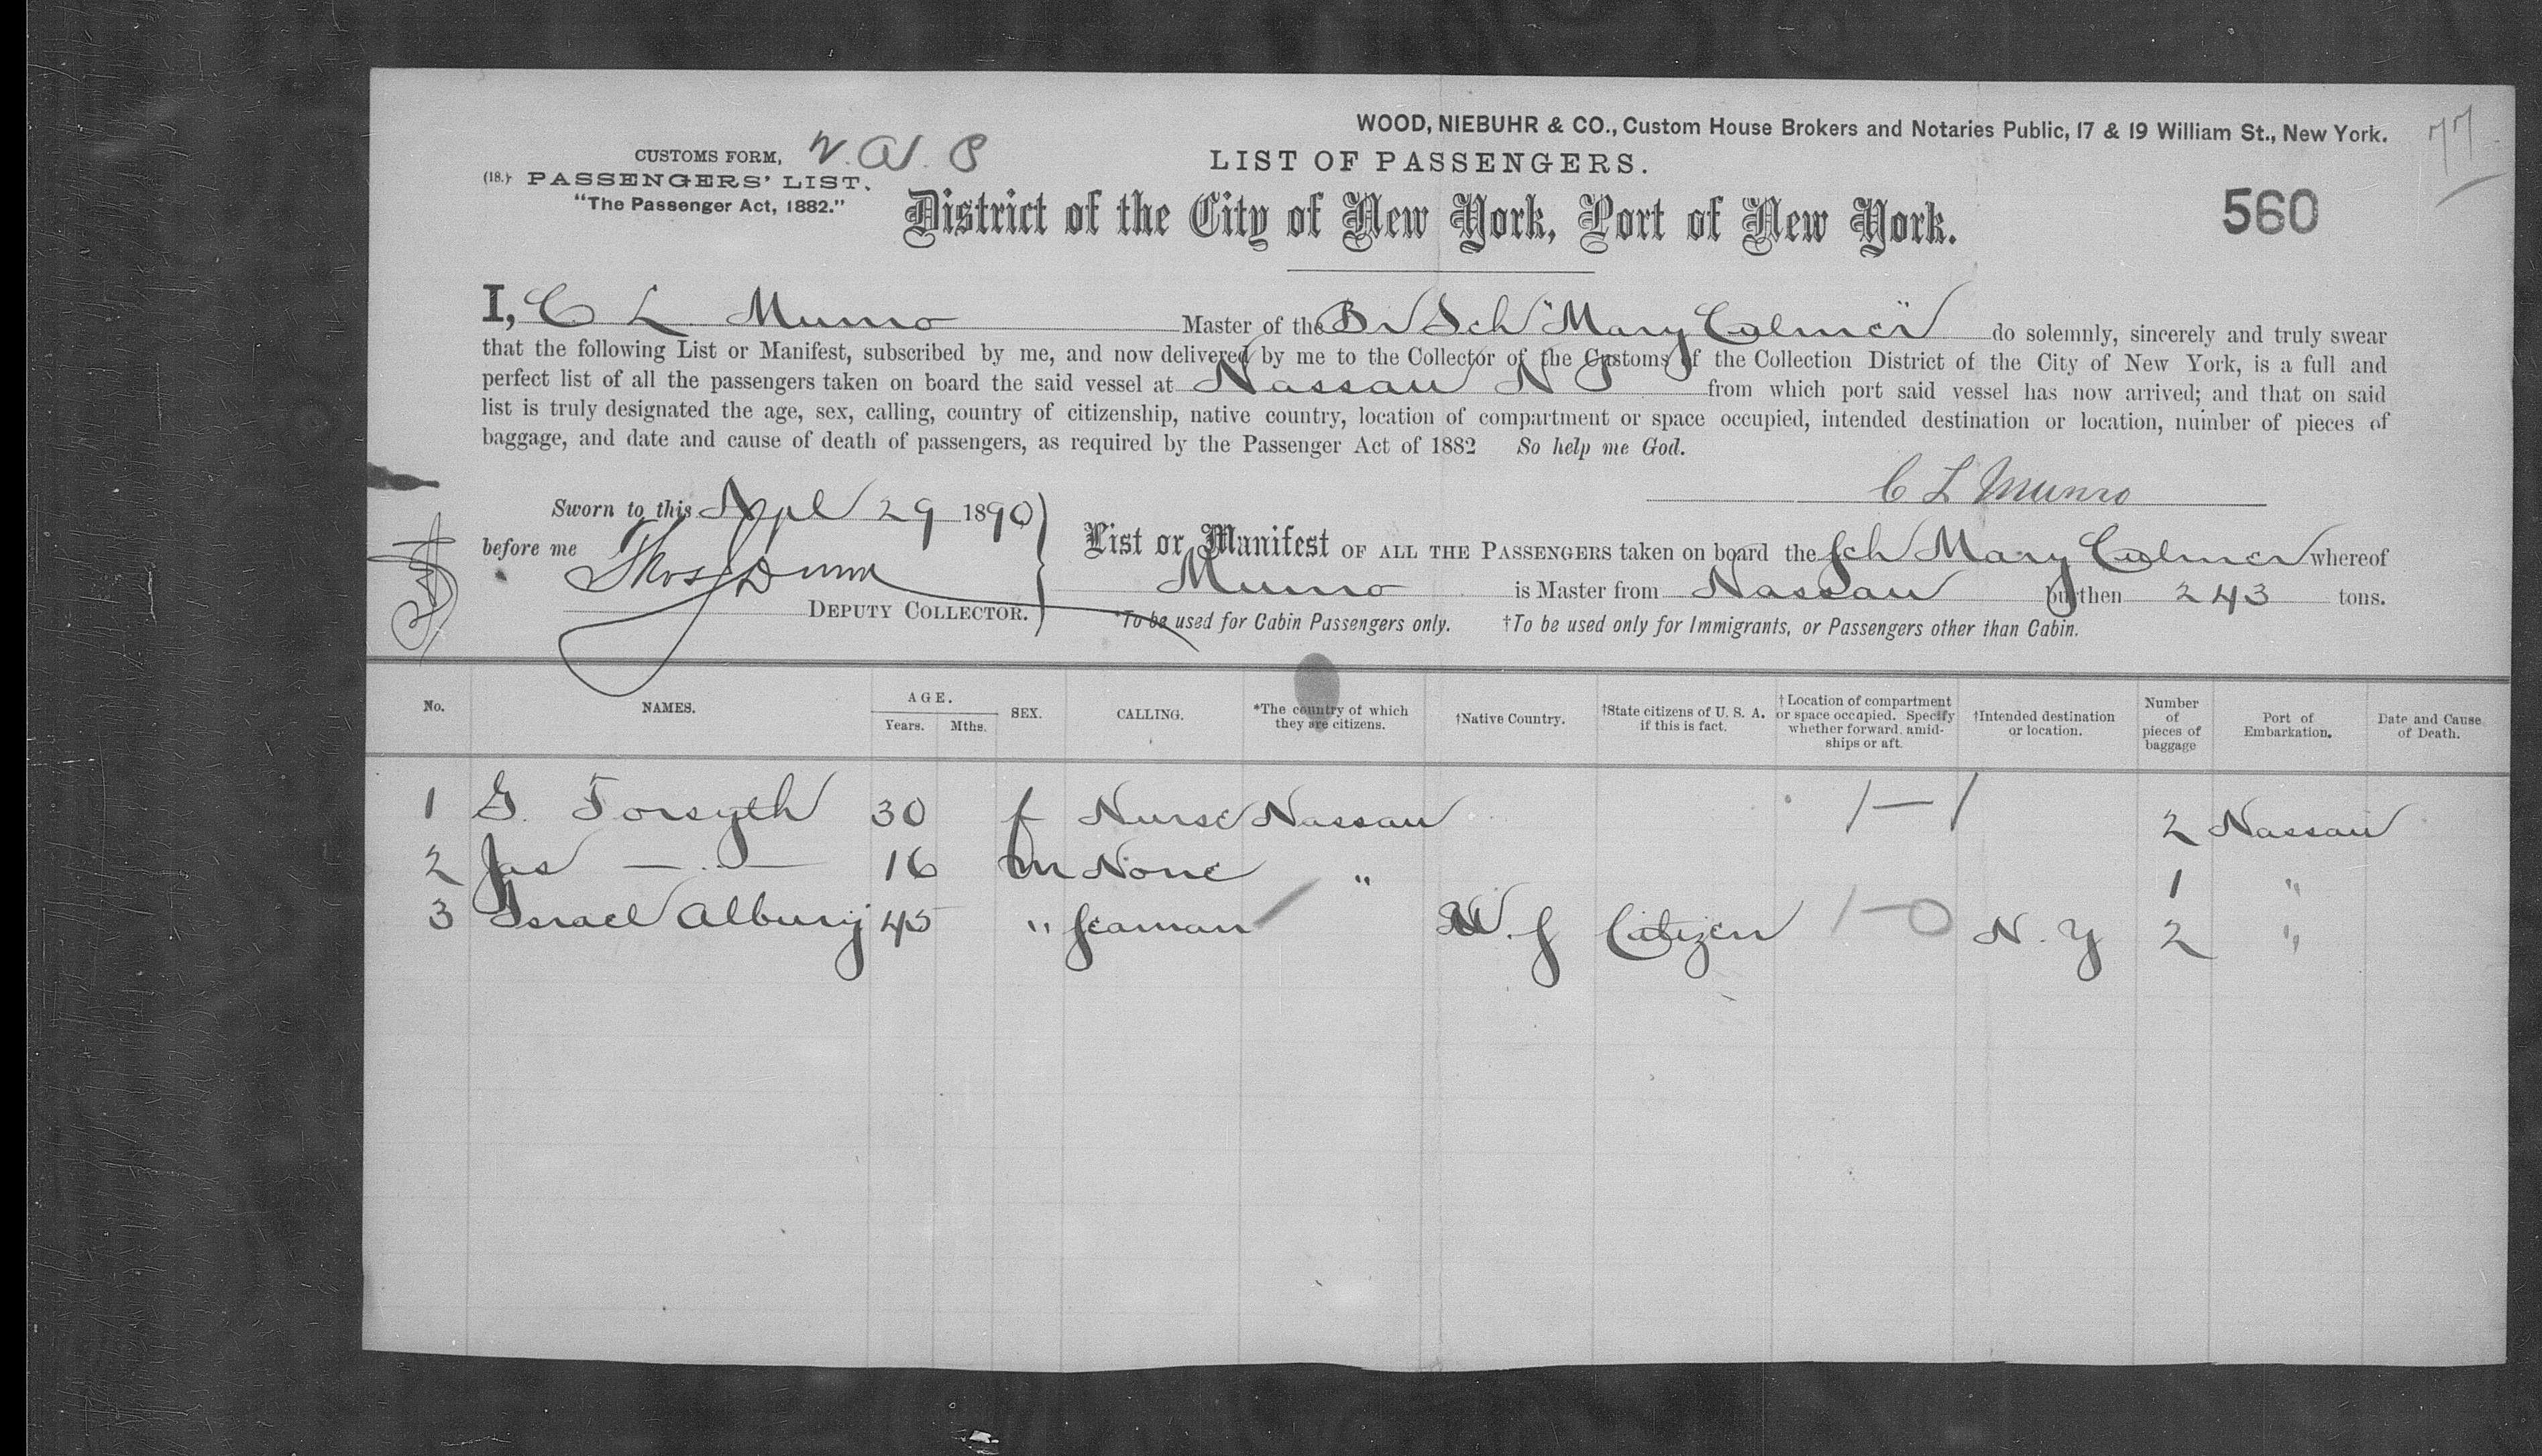 WOOD, NIEBUHR & CO., Custom House Brokers and Notaries Public, 17 & 19 William St., New York.
77
CUSTOMS FORM,
LIST OF PASSENGERS.
(18.) PASSENGERS' LIST.
"The Passenger Act, 1882."
District of the City of New York, Port of New York.
560
I, C L Munro Master of the Br Sch "Mary Colmer" do solemnly, sincerely and truly swear
that the following List or Manifest, subscribed by me, and now delivered by me to the Collector of the Customs of the Collection District of the City of New York, is a full and
perfect list of all the passengers taken on board the said vessel at Nassau N P from which port said vessel has now arrived; and that on said
list is truly designated the age, sex, calling, country of citizenship, native country, location of compartment or space occupied, intended destination or location, number of pieces of
baggage, and date and cause of death of passengers, as required by the Passenger Act of 1882 So help me God.
C L Munro
Sworn to this Apl 29 1890
before me Thos Dunn
DEPUTY COLLECTOR.
List or Manifest OF ALL THE PASSENGERS taken on board the Sch Mary Colmer whereof
Munro is Master from Nassau burthen 243 tons.
*To be used for Cabin Passengers only. †To be used only for Immigrants, or Passengers other than Cabin.
No. NAMES. AGE. Years. Mths. SEX. CALLING. *The country of which they are citizens. †Native Country. †State citizens of U. S. A. if this is fact. †Location of compartment or space occupied. Specify whether forward, amid-ships or aft. †Intended destination or location. Number of pieces of baggage Port of Embarkation. Date and Cause of Death.
1 G. Forsyth 30 f Nurse Nassau 1—1 2 Nassau
2 Jas — " — 16 m None " 1 "
3 Israel Albury 45 " Seaman Citizen 1—0 N. Y 2 "